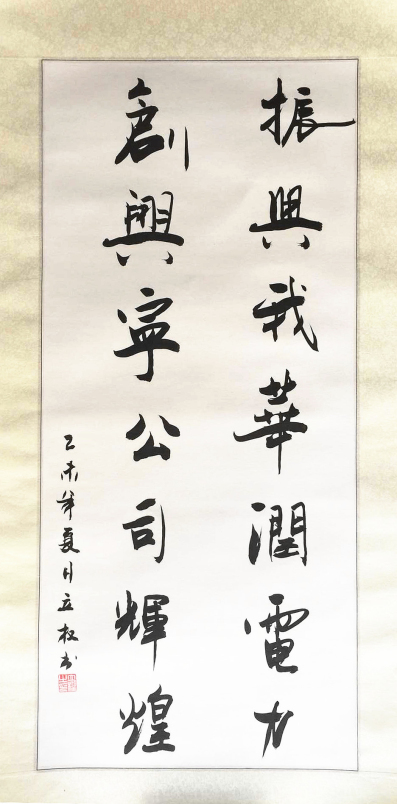 振興我華潤電力
創興寧公司輝煌
乙未年夏月立权书